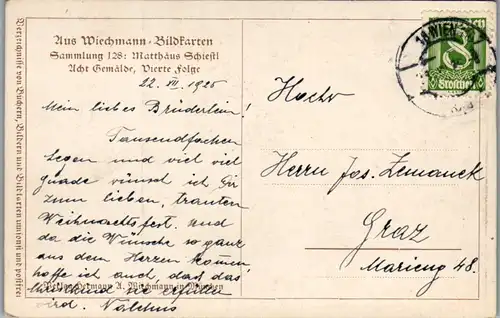 Aus Wiechmann-Bildkarten
Sammlung 128: Matthäus Schiestl
Acht Gemälde, Vierte Folge
22. XII. 1925
Mein liebes Brüderlein!
Tausendfachen
Segen und viel viel
Gnade wünsch ich Dir
zum lieben, trauten
Weihnachtsfest. Und
da die Wünsche so ganz
aus dem Herzen kommen,
hoffe ich auch, dass das
Christkind sie erfüllen
wird.
Verlag Hermann A. Wiechmann in München
Verzeichnisse von Büchern, Bildern und Bildkarten umsonst und postfrei
WIEN
8
Groschen
Hochw
Herrn Jos. Zemanek
Graz
Marieng 48.